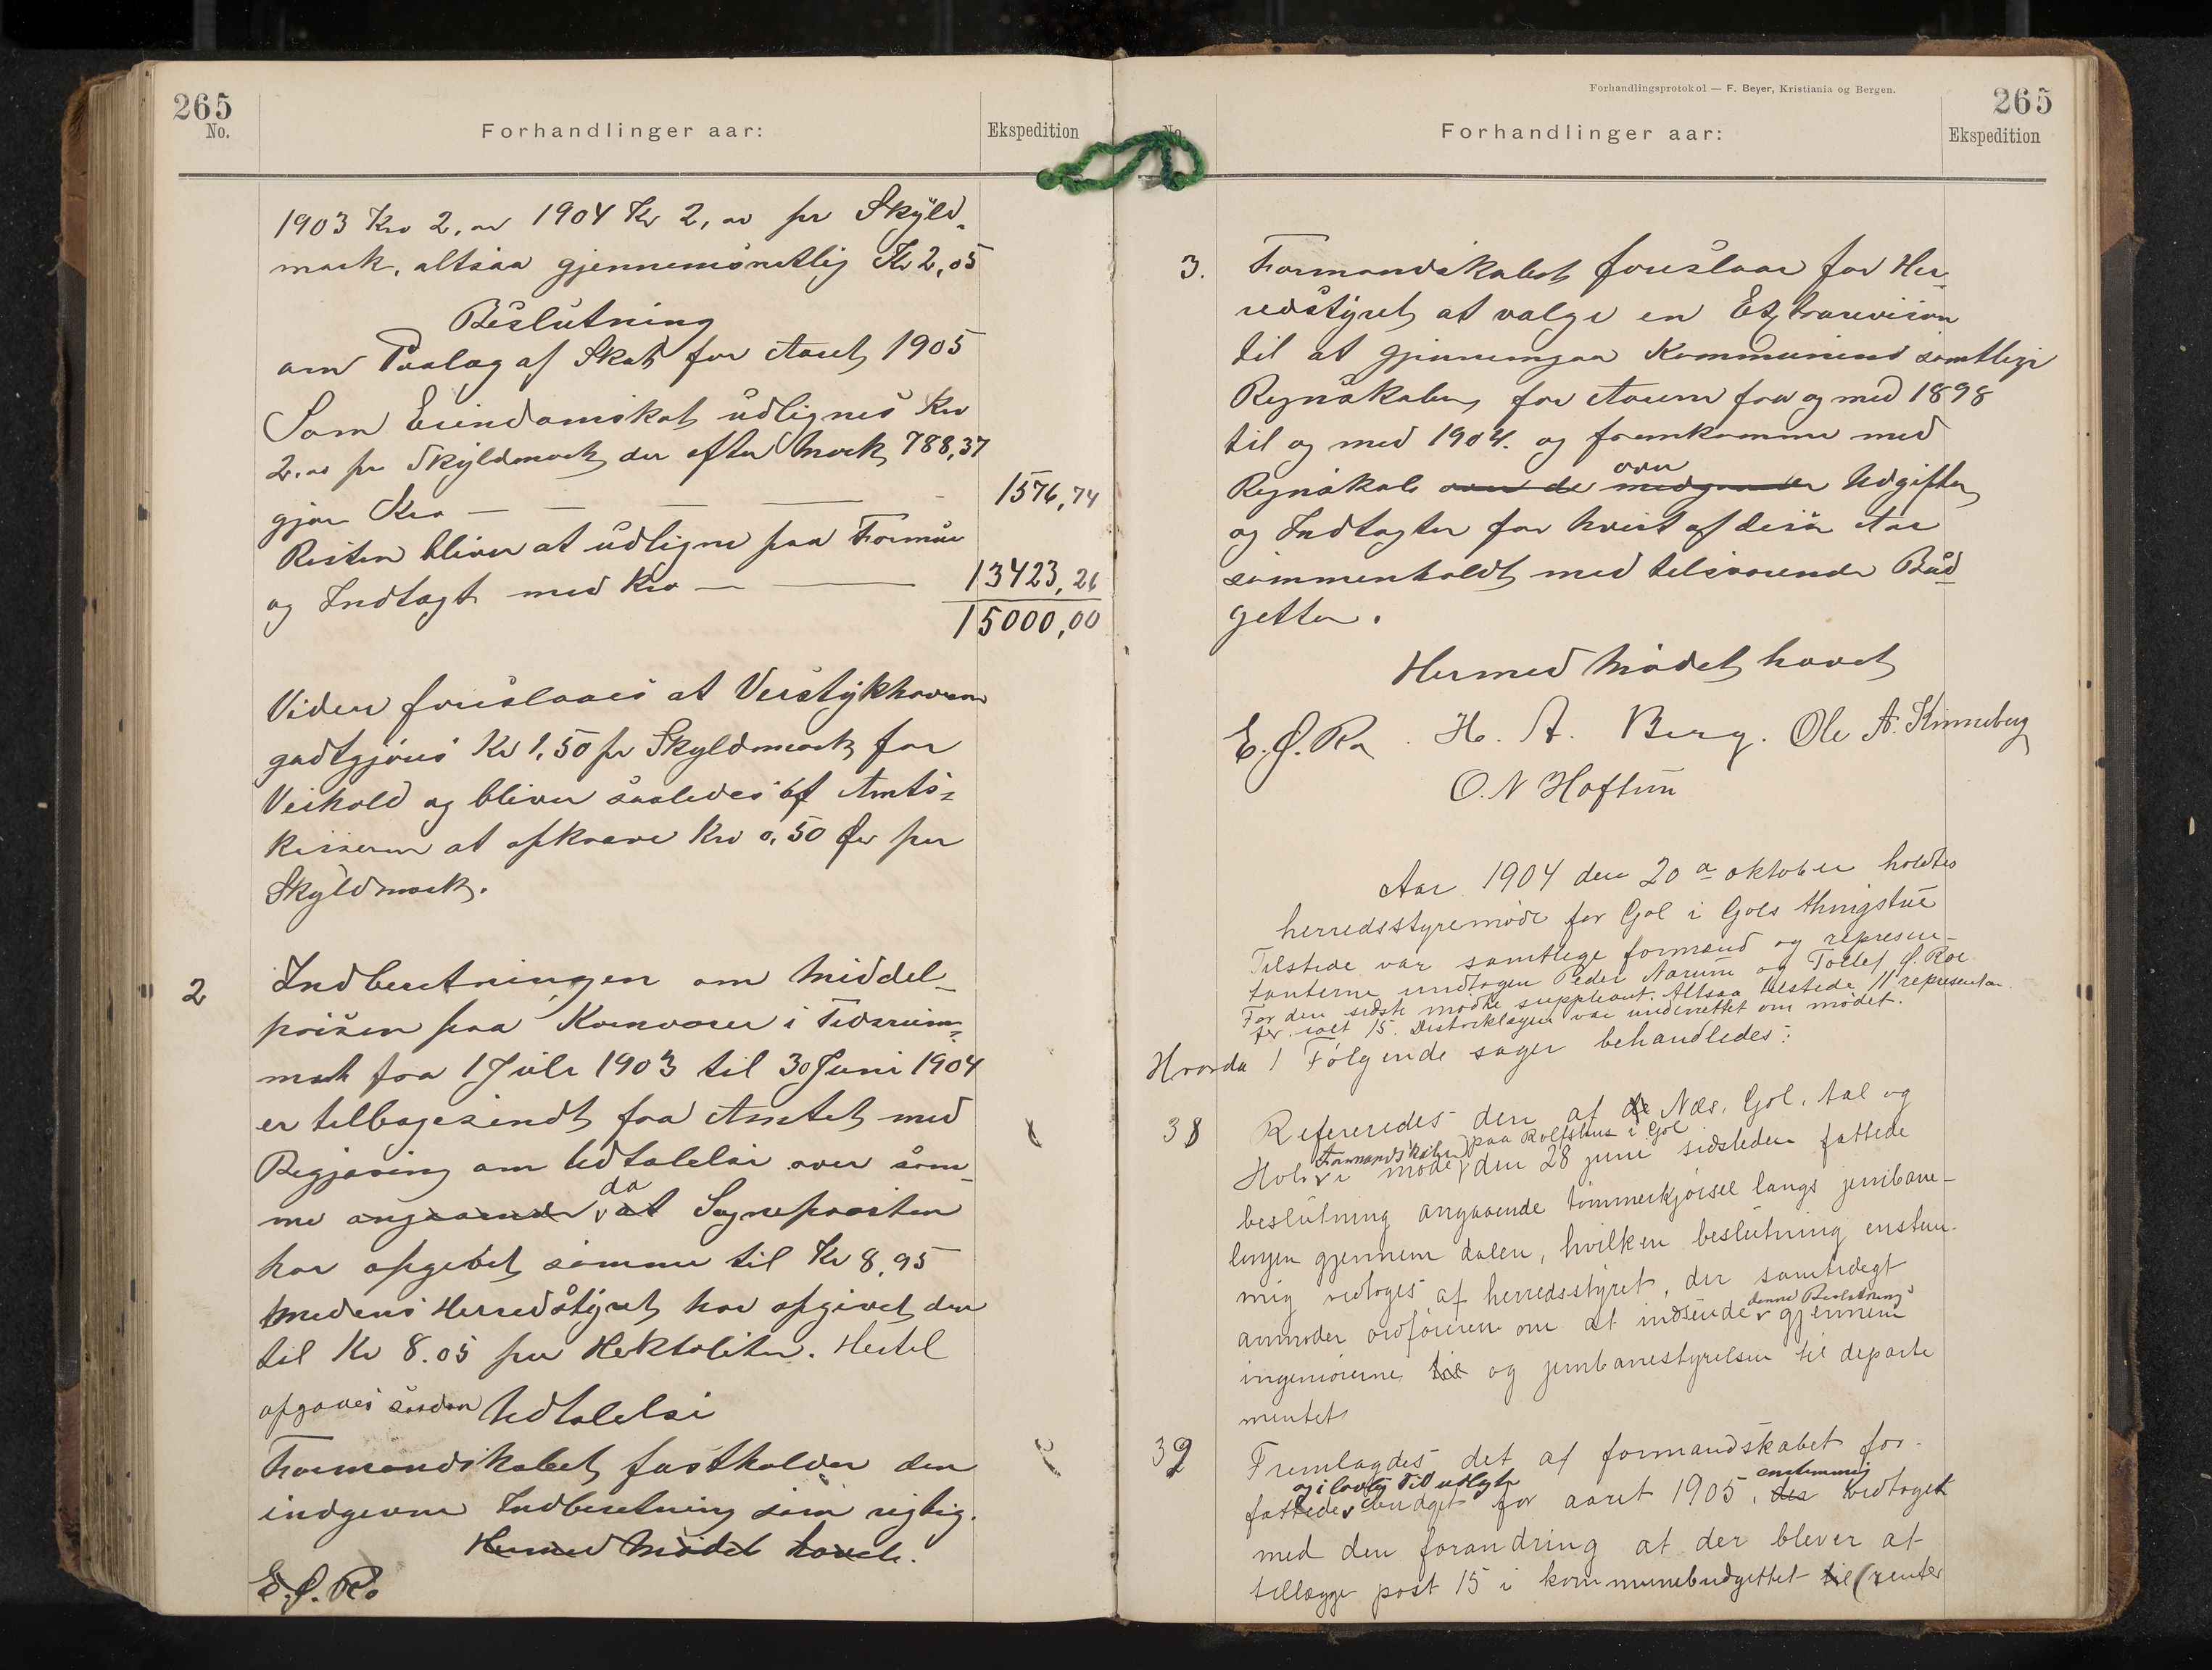 265
No.
Forhandlinger aar:
Ekspedition
1903 Kro 2,00 1904 Kr 2,00 pr Skyld-
mark, altsaa gjennemsnitlig Kr 2,05
Beslutning
om Paalæg af Skat for Aaret 1905
Som Eiendomskat udlignes Kro
2,00 pr Skyldmark der efter Mark 788,37
gjør Kro — — — — 1576,74
Resten bliver at udligne paa Formue
og Indtægt med Kro — — 13423,26
15000,00
Videre foreslaaes at Veistykhaverne
godtgjøres Kr 1,50 pr Skyldmark for
Veihold og bliver saaledes af Amts-
kasseren at opkræve Kro 0,50 Øre per
Skyldmark.
2 Indberetningen om Middel-
prisen paa Kornvarer i Tidsrum-
met fra 1 Juli 1903 til 30 Juni 1904
er tilbagesendt fra Amtet med
Begjæring om Udtalelse over sam-
me angaaende da at Sognepræsten
har opgivet samme til Kr 8,95
medens Herredstyret har opgivet den
til Kr 8.05 per Hektoliter. Hertil
afgaves saadan Udtalelse
Formandskabet fastholder den
indgivne Indberetning som rigtig.
Hermed Mødet hævet.
E. Ø. Ro
Forhandlingsprotokol — F. Beyer, Kristiania og Bergen.
265
No.
Forhandlinger aar:
Ekspedition
3. Formandskabet foreslaar for Her-
redstyret at vælge en Extrarevision
til at gjennemgaa Kommunens samtlige
Regnskaber for Aarene fra og med 1898
til og med 1904. og fremkomme med
over
Regnskab over de medgaaede Udgifter
og Indtægter for hvert af disse Aar
sammenholdt med tilsvarende Bud-
getter.
Hermed Mødet hævet
E. Ø. Ro. H. A. Berg. Ole A. Kinneberg
O. N Hoftun
Aar 1904 den 20de oktober holdtes
herredsstyremøde for Gol i Gols thingstue
Tilstede var samtlige formænd og represen-
tanterne undtagen Peder Narum og Tollef Ø. Roe
For den sidste mødte suppleant. Altsaa tilstede 11 representan-
ter ialt 15. Distriktslægen var underrettet om mødet.
Hvorda / Følgende sager behandledes:
38 Refereredes den af de Næs, Gol, Aal og
Formandskaber paa Rolfshus i Gol
Hol i møde den 28 juni sidstleden fattede
beslutning angaaende tømmerkjørsel langs jernbane-
linjen gjennem dalen, hvilken beslutning enstem-
mig vedtoges af herredsstyret, der samtidigt
denne Beslutning
anmoder ordføreren om at indsende gjennem
ingeniørerne til og jernbanestyrelsen til departe
mentet
39 Fremlagdes det af formandskabet for-
og i lovlig Tid udlagte enstemmig
fattede budget for aaret 1905, der vedtoges
med den forandring at der bliver at
tillægge post 15 i kommunebudgettet til (renter